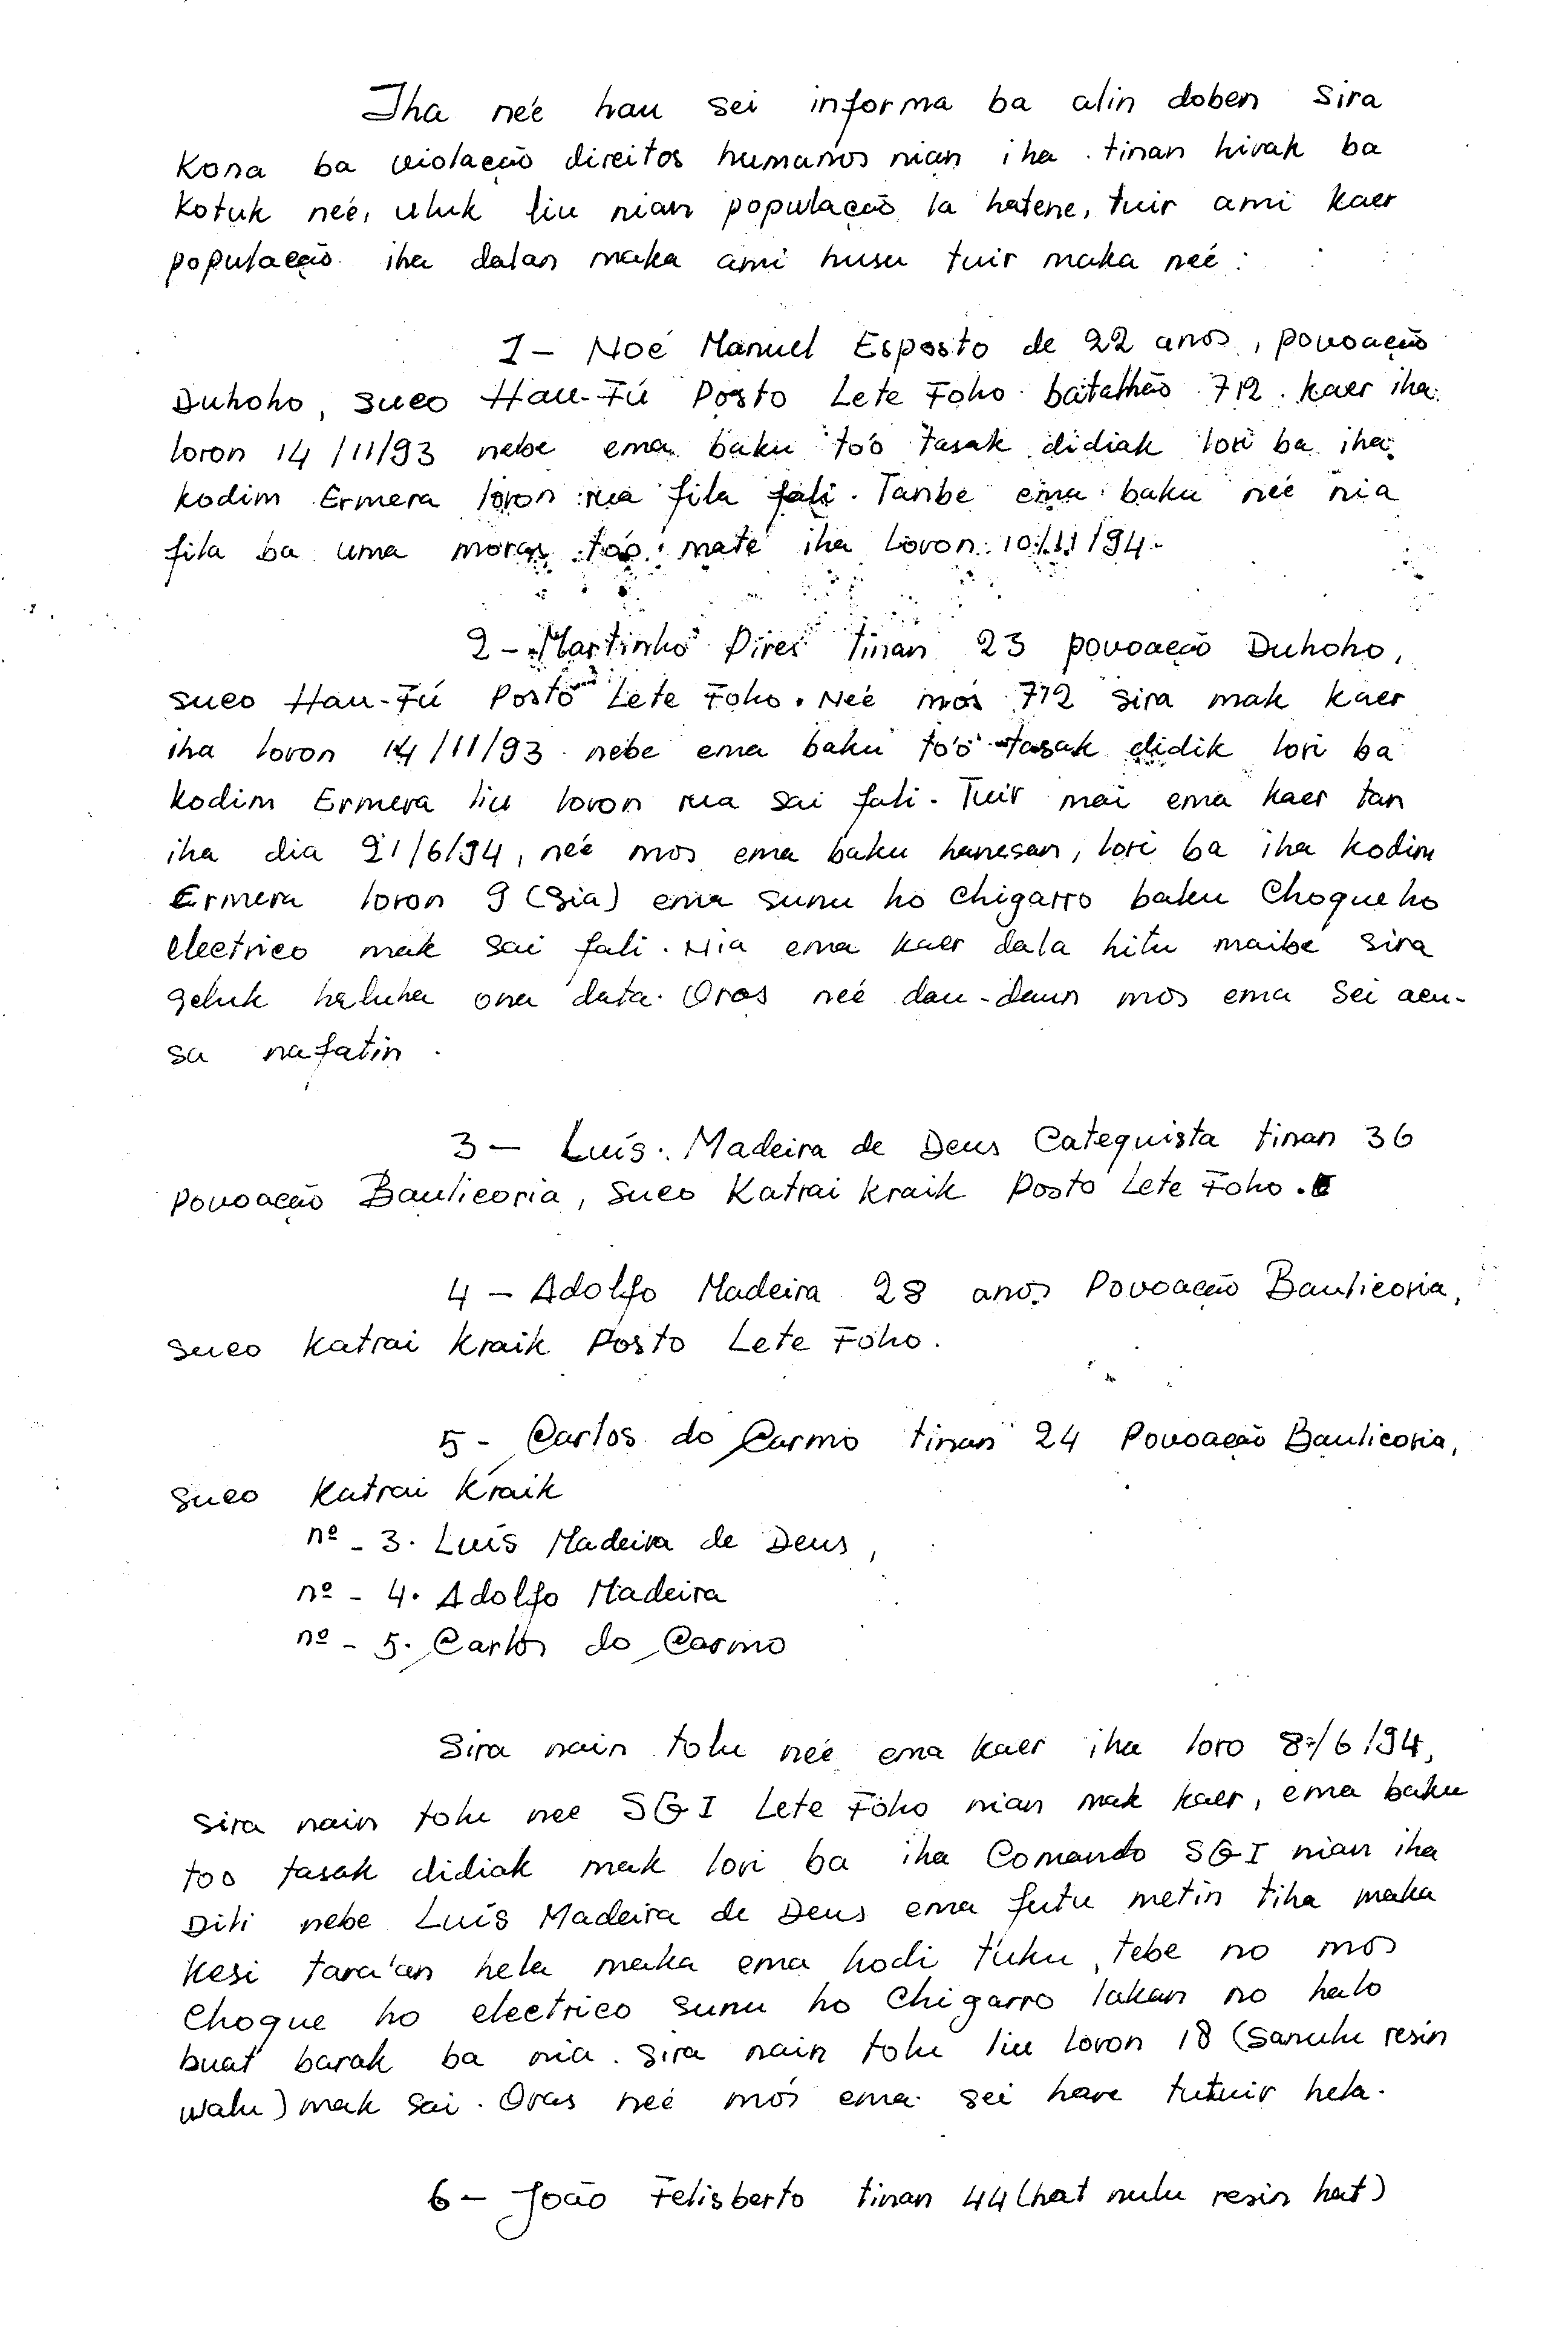 Iha neé hau sei informa ba alin doben sira
Kona ba violação direitos humanos nian iha tinan hirak ba
Kotuk neé, uluk liu nian população la hatene, tuir ami kaer
população iha dalan maka ami husu tuir maka neé:
1- Noé Manuel Esposto de 22 anos, povoação
Duhoho, suco Hau-Fú Posto Lete Foho batalhão 712 kaer iha
loron 14/11/93 nebe ema baku to'o tasak didiak lori ba iha
kodim Ermera loron rua fila fali. Tanbe ema baku neé nia
fila ba uma moras to'o mate iha Loron 10/11/94-
2- Martinho Pires tinan 23 povoação Duhoho,
suco Hau-Fú Posto Lete Foho. Neé mós 712 sira mak kaer
iha loron 14/11/93 nebe ema baku to'o tasak didik lori ba
kodim Ermera liu loron rua sai fali. Tuir mai ema kaer tan
iha dia 21/6/94, neé mos ema baku hanesan, lori ba iha kodim
Ermera loron 9 (Sia) ema sunu ho chigarro baku Choque ho
electrico mak sai fali. Nia ema kaer dala hitu maibe sira
seluk haluha ona data. Oras neé dau-daun mos ema sei acu-
sa nafatin.
3- Luís Madeira de Deus Catequista tinan 36
povoação Baulicoria, suco Katrai kraik Posto Lete Foho.
4- Adolfo Madeira 28 anos Povoação Baulicoria,
suco Katrai kraik Posto Lete Foho.
5- Carlos do Carmo tinan 24 Povoação Baulicoria,
suco Katrai Kraik
nº - 3. Luís Madeira de Deus,
nº - 4. Adolfo Madeira
nº - 5. Carlos do Carmo
Sira nain tolu neé ema kaer iha loro 8/6/94,
sira nain tolu nee SGI Lete Foho nian mak kaer, ema baku
too tasak didiak mak lori ba iha Comando SGI nian iha
Dili nebe Luís Madeira de Deus ema futu metin tiha maka
Kesi tara'an hela maka ema hodi tuku, tebe no mos
Choque ho electrico sunu ho Chigarro lakan no halo
buat barak ba nia. Sira nain tolu liu loron 18 (Sanulu resin
walu) mak sai. Oras neé mós ema sei hare tutuir hela.
6- João Felisberto tinan 44 (hat nulu resin hat)